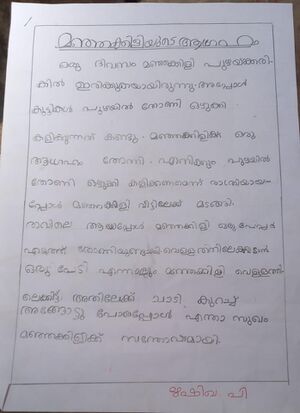 മഞ്ഞക്കിളിയുടെ ആഗ്രഹം
ഒരു ദിവസം മഞ്ഞക്കിളി പുഴയ്ക്കരി-
കിൽ ഇരിക്കുകയായിരുന്നു. അപ്പോൾ
കുട്ടികൾ പുഴയിൽ തോണി ഒഴുക്കി
കളിക്കുന്നത് കണ്ടു. മഞ്ഞക്കിളിക്ക് ഒരു
ആഗ്രഹം തോന്നി. എനിക്കും പുഴയിൽ
തോണി ഒഴുക്കി കളിക്കണമെന്ന് രാത്രിയായ-
പ്പോൾ മഞ്ഞക്കിളി വീട്ടിലേക്ക് മടങ്ങി.
രാവിലെ ആയപ്പോൾ മഞ്ഞക്കിളി ഒരു പേപ്പർ
എടുത്ത് തോണിയുണ്ടാക്കി വെള്ളത്തിലേക്കിടാൻ
ഒരു പേടി എന്നാലും മഞ്ഞക്കിളി വെള്ളത്തി
ലേക്കിട്ട് അതിലേക്ക് ചാടി കുറച്ച്
അങ്ങോട്ടു പോയപ്പോൾ എന്താ സുഖം
മഞ്ഞക്കിളിക്ക് സന്തോഷമായി.
ഋഷിബ പി